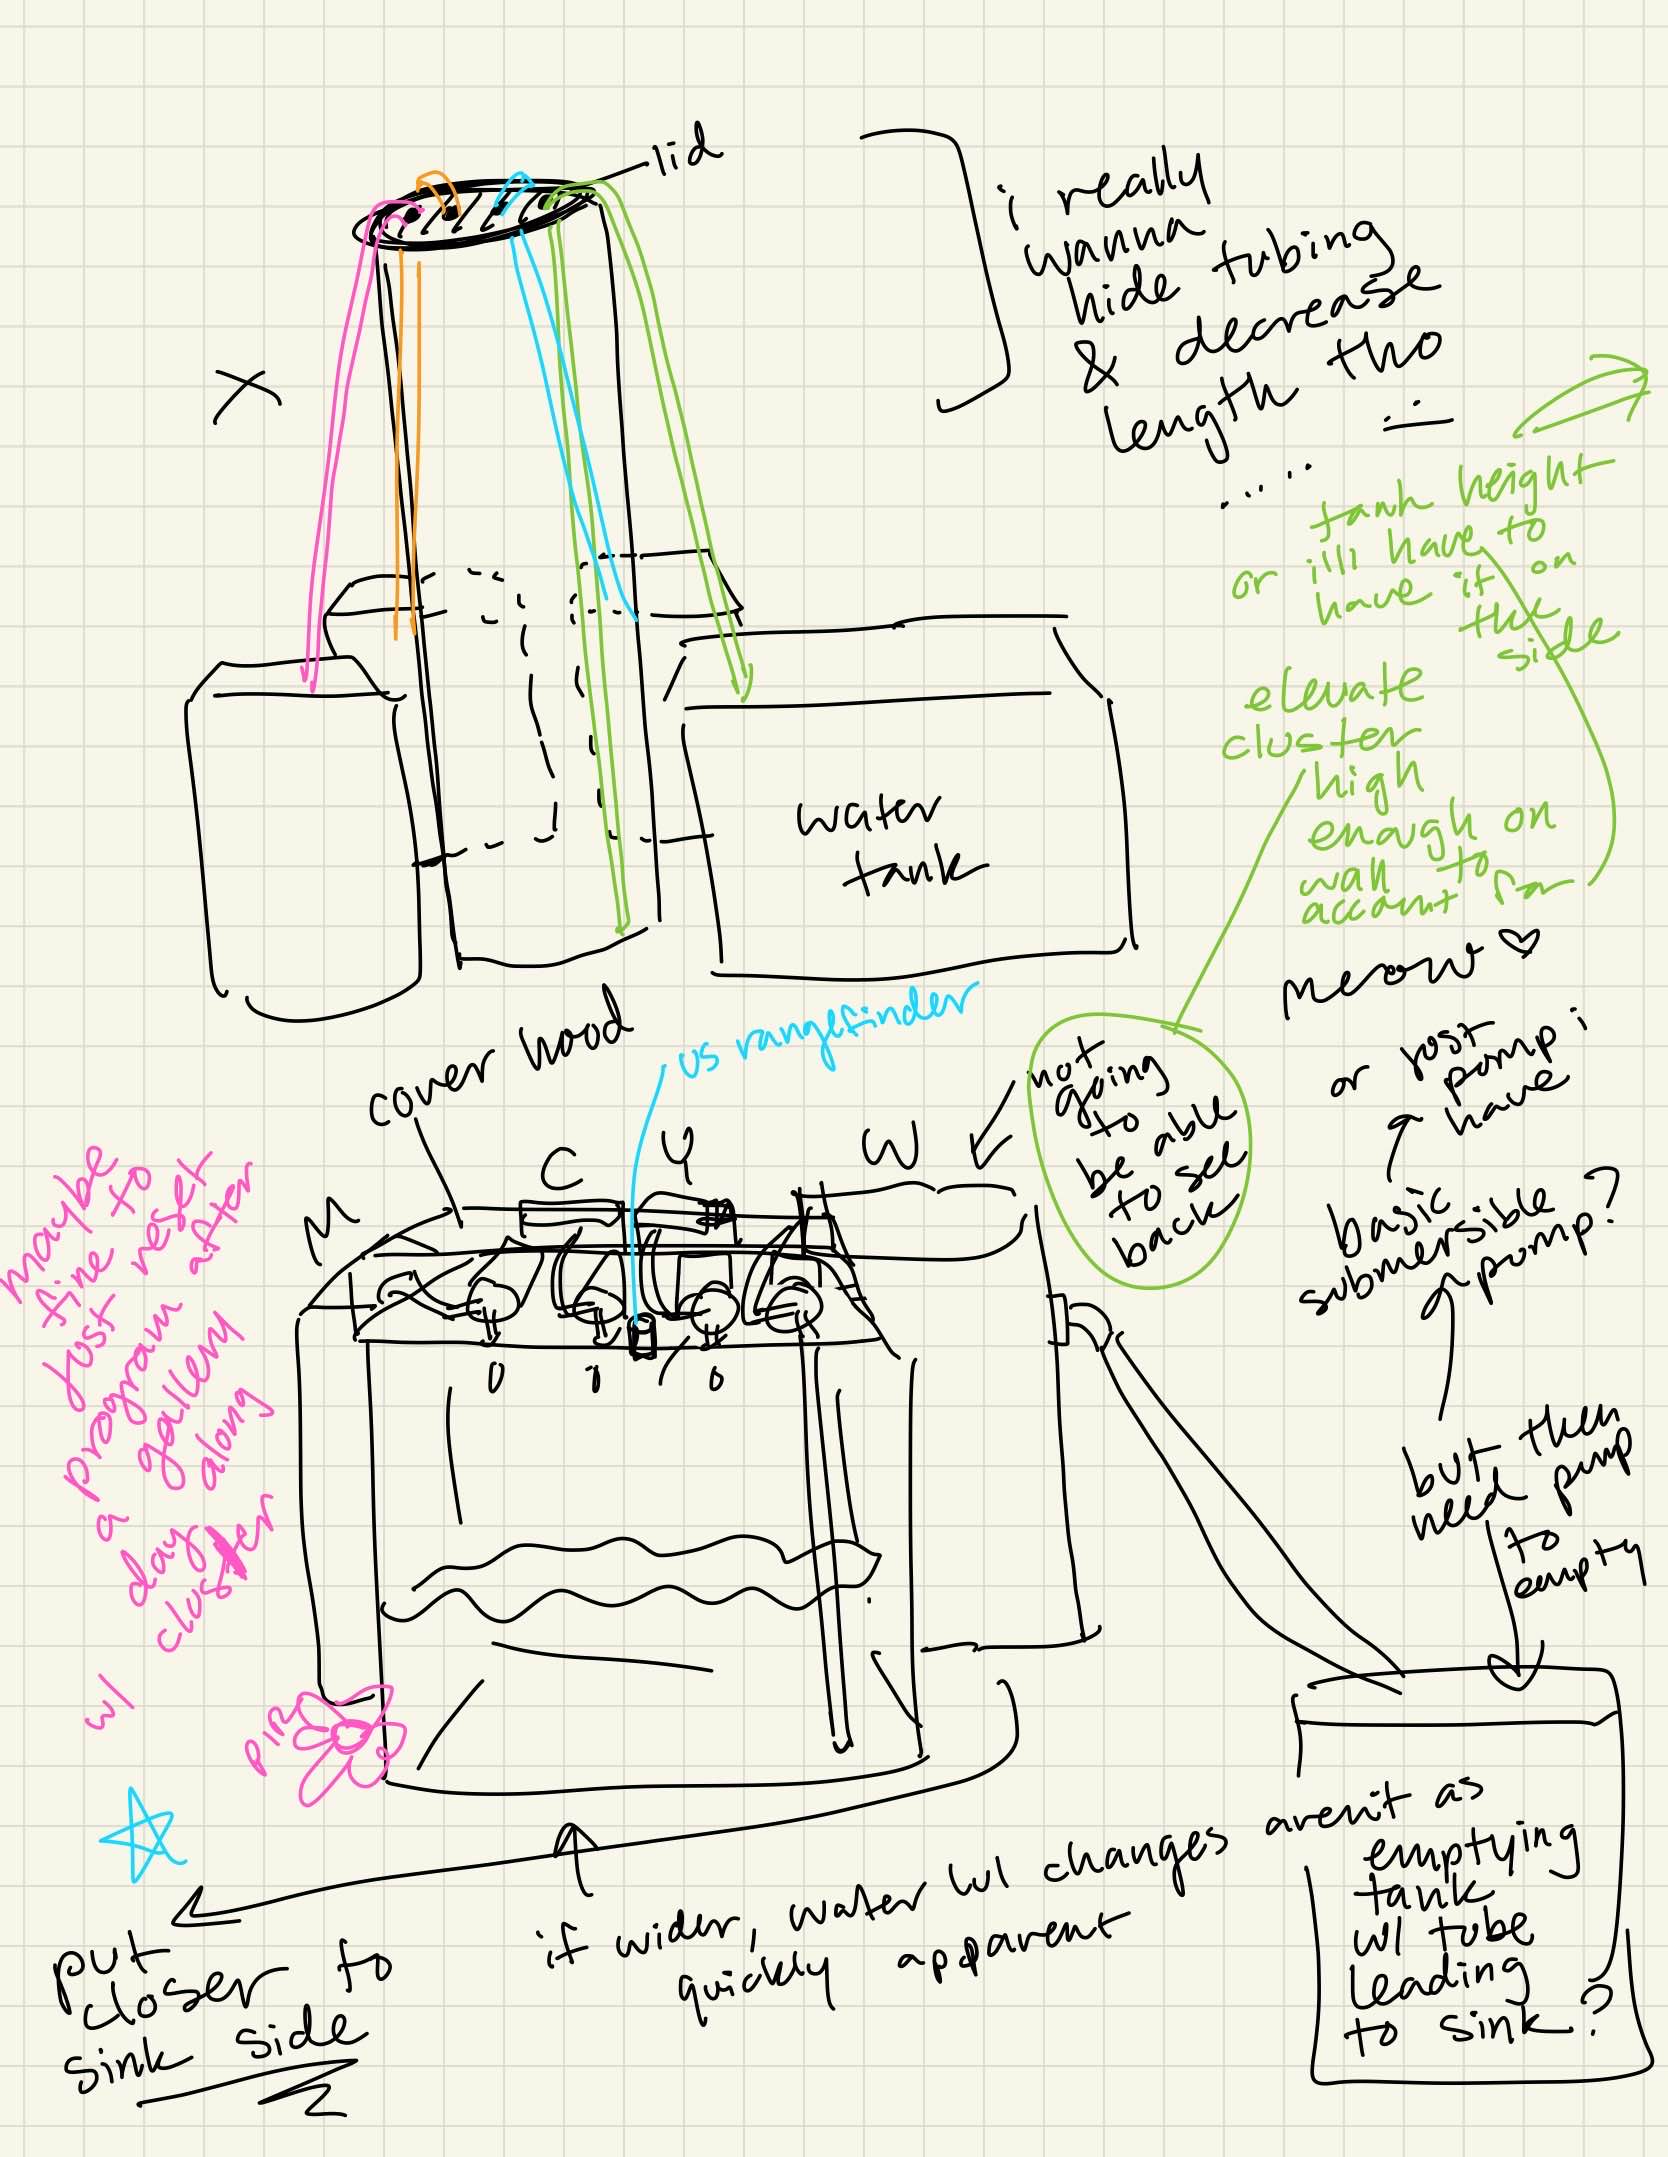 lid
i really
wanna
hide tubing
& decrease
length tho
.....
X
tank height
or i'll have to
have it on
the
side
elevate
cluster
high
enough on
wall to
account for
meow ♡
water
tank
cover hood
us rangefinder
not
going
to
be able
to see
back
or just
pump i
have
basic
submersible
pump?
but then
need pump
to
empty
M
C
Y
W
maybe
fine to
just reset
program after
a gallery
day along
w/ cluster
PIR
put
closer to
sink side
if wider, water lvl changes aren't as
quickly apparent
emptying
tank
w/ tube
leading
to sink?